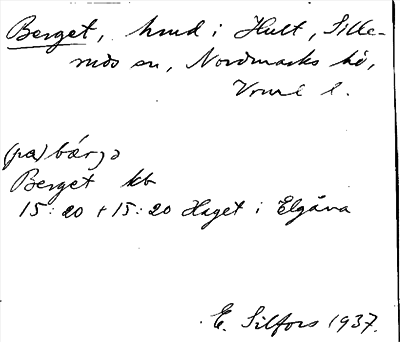 Berget, hmd i Hult, Sille-
ruds sn, Nordmarks hd,
Vrml l.
(pa) bárjə
Berget kb
15:20 + 15:20 Haget i Elgåna
E. Silfors 1937.